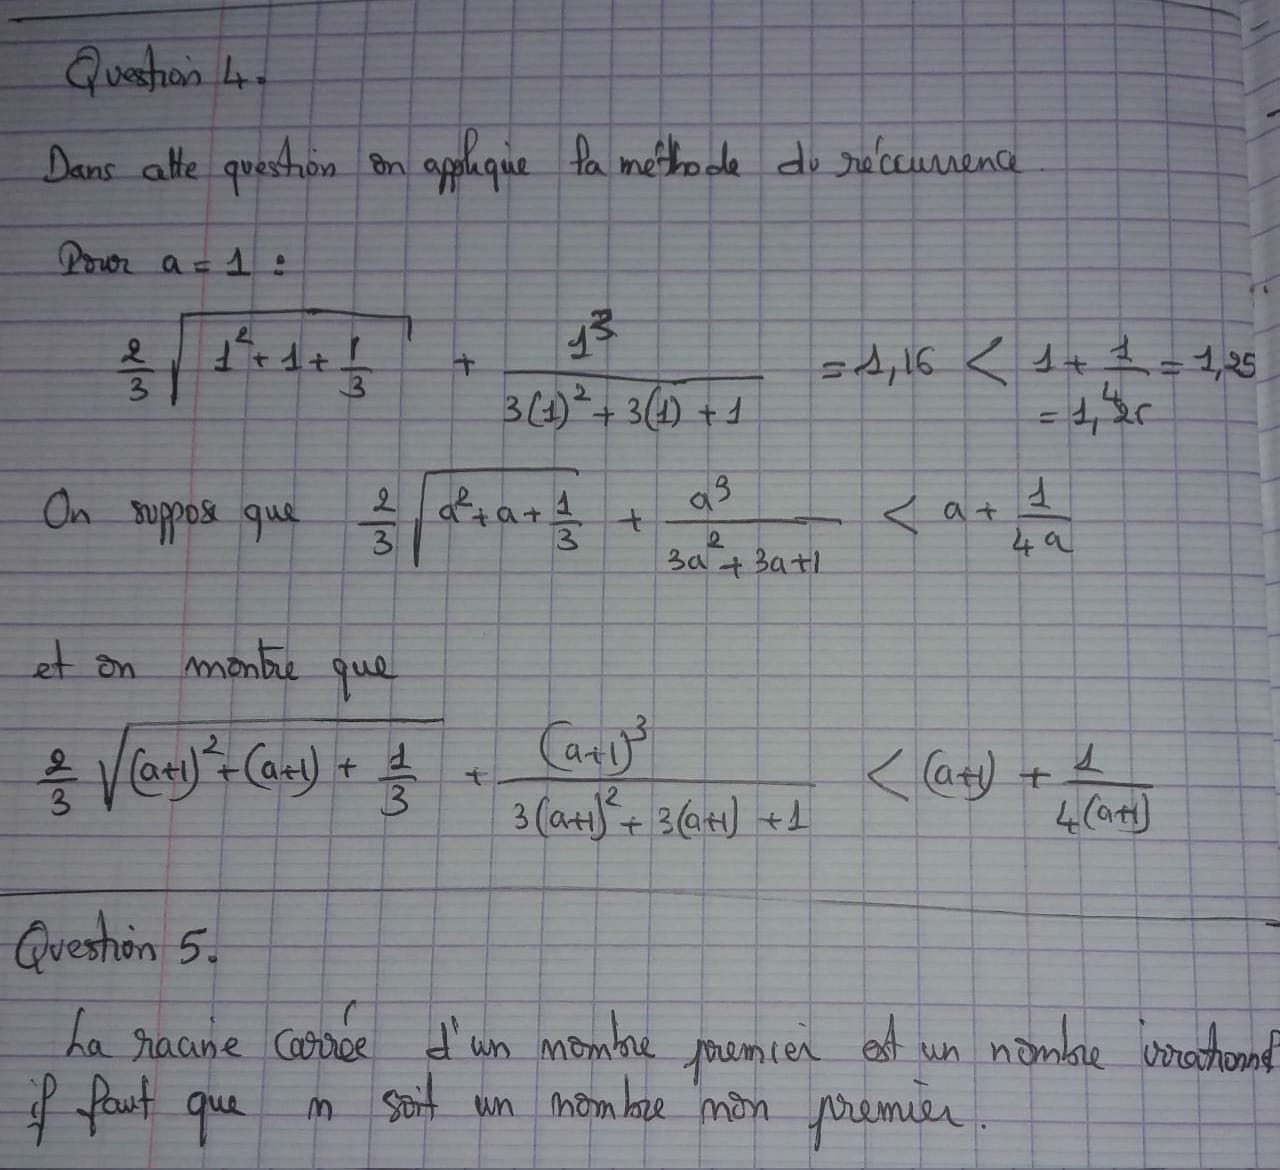 Question 4.
Dans cette question on applique la méthode du réccurrence.
Pour a = 1 :
2/3 √(1² + 1 + 1/3) + 1³/(3(1)² + 3(1) + 1) = 1,16 < 1 + 1/4 = 1,25
= 1,25
On suppose que 2/3 √(a² + a + 1/3) + a³/(3a² + 3a + 1) < a + 1/4a
et on montre que
2/3 √((a+1)² + (a+1) + 1/3) + (a+1)³/(3(a+1)² + 3(a+1) + 1) < (a+1) + 1/4(a+1)
Question 5.
La racine carrée d'un nombre premier est un nombre irrationnel
il faut que n soit un nombre non premier.